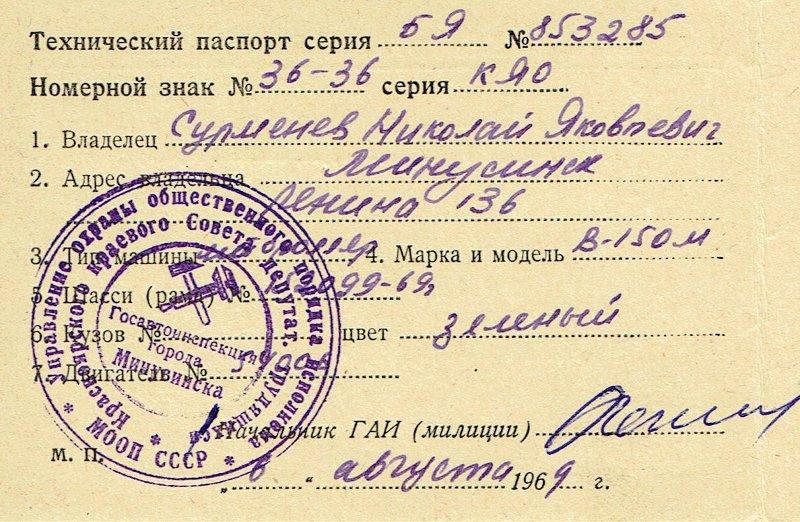 Технический паспорт серия БЯ № 853285
Номерной знак № 36-36 серия КЯО
1. Владелец Сурменев Николай Яковлевич
2. Адрес владельца Минусинск
Ленина 136
3. Тип машины мотороллер 4. Марка и модель В-150М
5. Шасси (рама) №
6. Кузов № цвет зеленый
7. Двигатель №
Начальник ГАИ (милиции)
М. П.
„6“ августа 1969 г.
Управление охраны общественного порядка исполкома
Красноярского краевого Совета депутат. трудящихся
* МООП СССР *
Госавтоинспекция
города
Минусинска